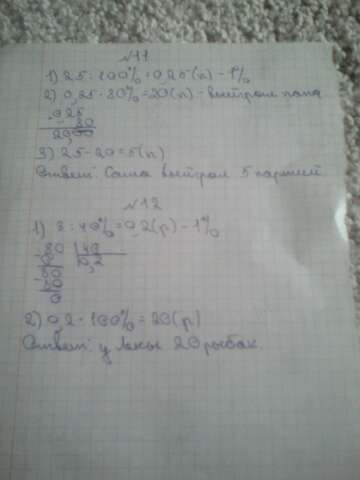 №11
1) 25 : 100% = 0,25(п) - 1%
2) 0,25 · 80% = 20(п) - выиграл папа
0,25
80
2000
3) 25 - 20 = 5(п)
Ответ: Саша выиграл 5 партией
№12
1) 8 : 40% = 0,2(р) - 1%
80 | 40
0 0,2
80
80
0
2) 0,2 · 100% = 20(р)
Ответ: у Аньки 20 рыбок.